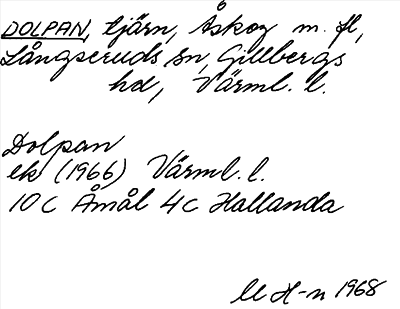 DOLPAN, tjärn, Åskog m. fl,
Långseruds sn, Gillbergs
hd, Värml. l.
Dolpan
ek (1966) Värml. l.
10 C Åmål 4 C Hallanda
U H-n 1968